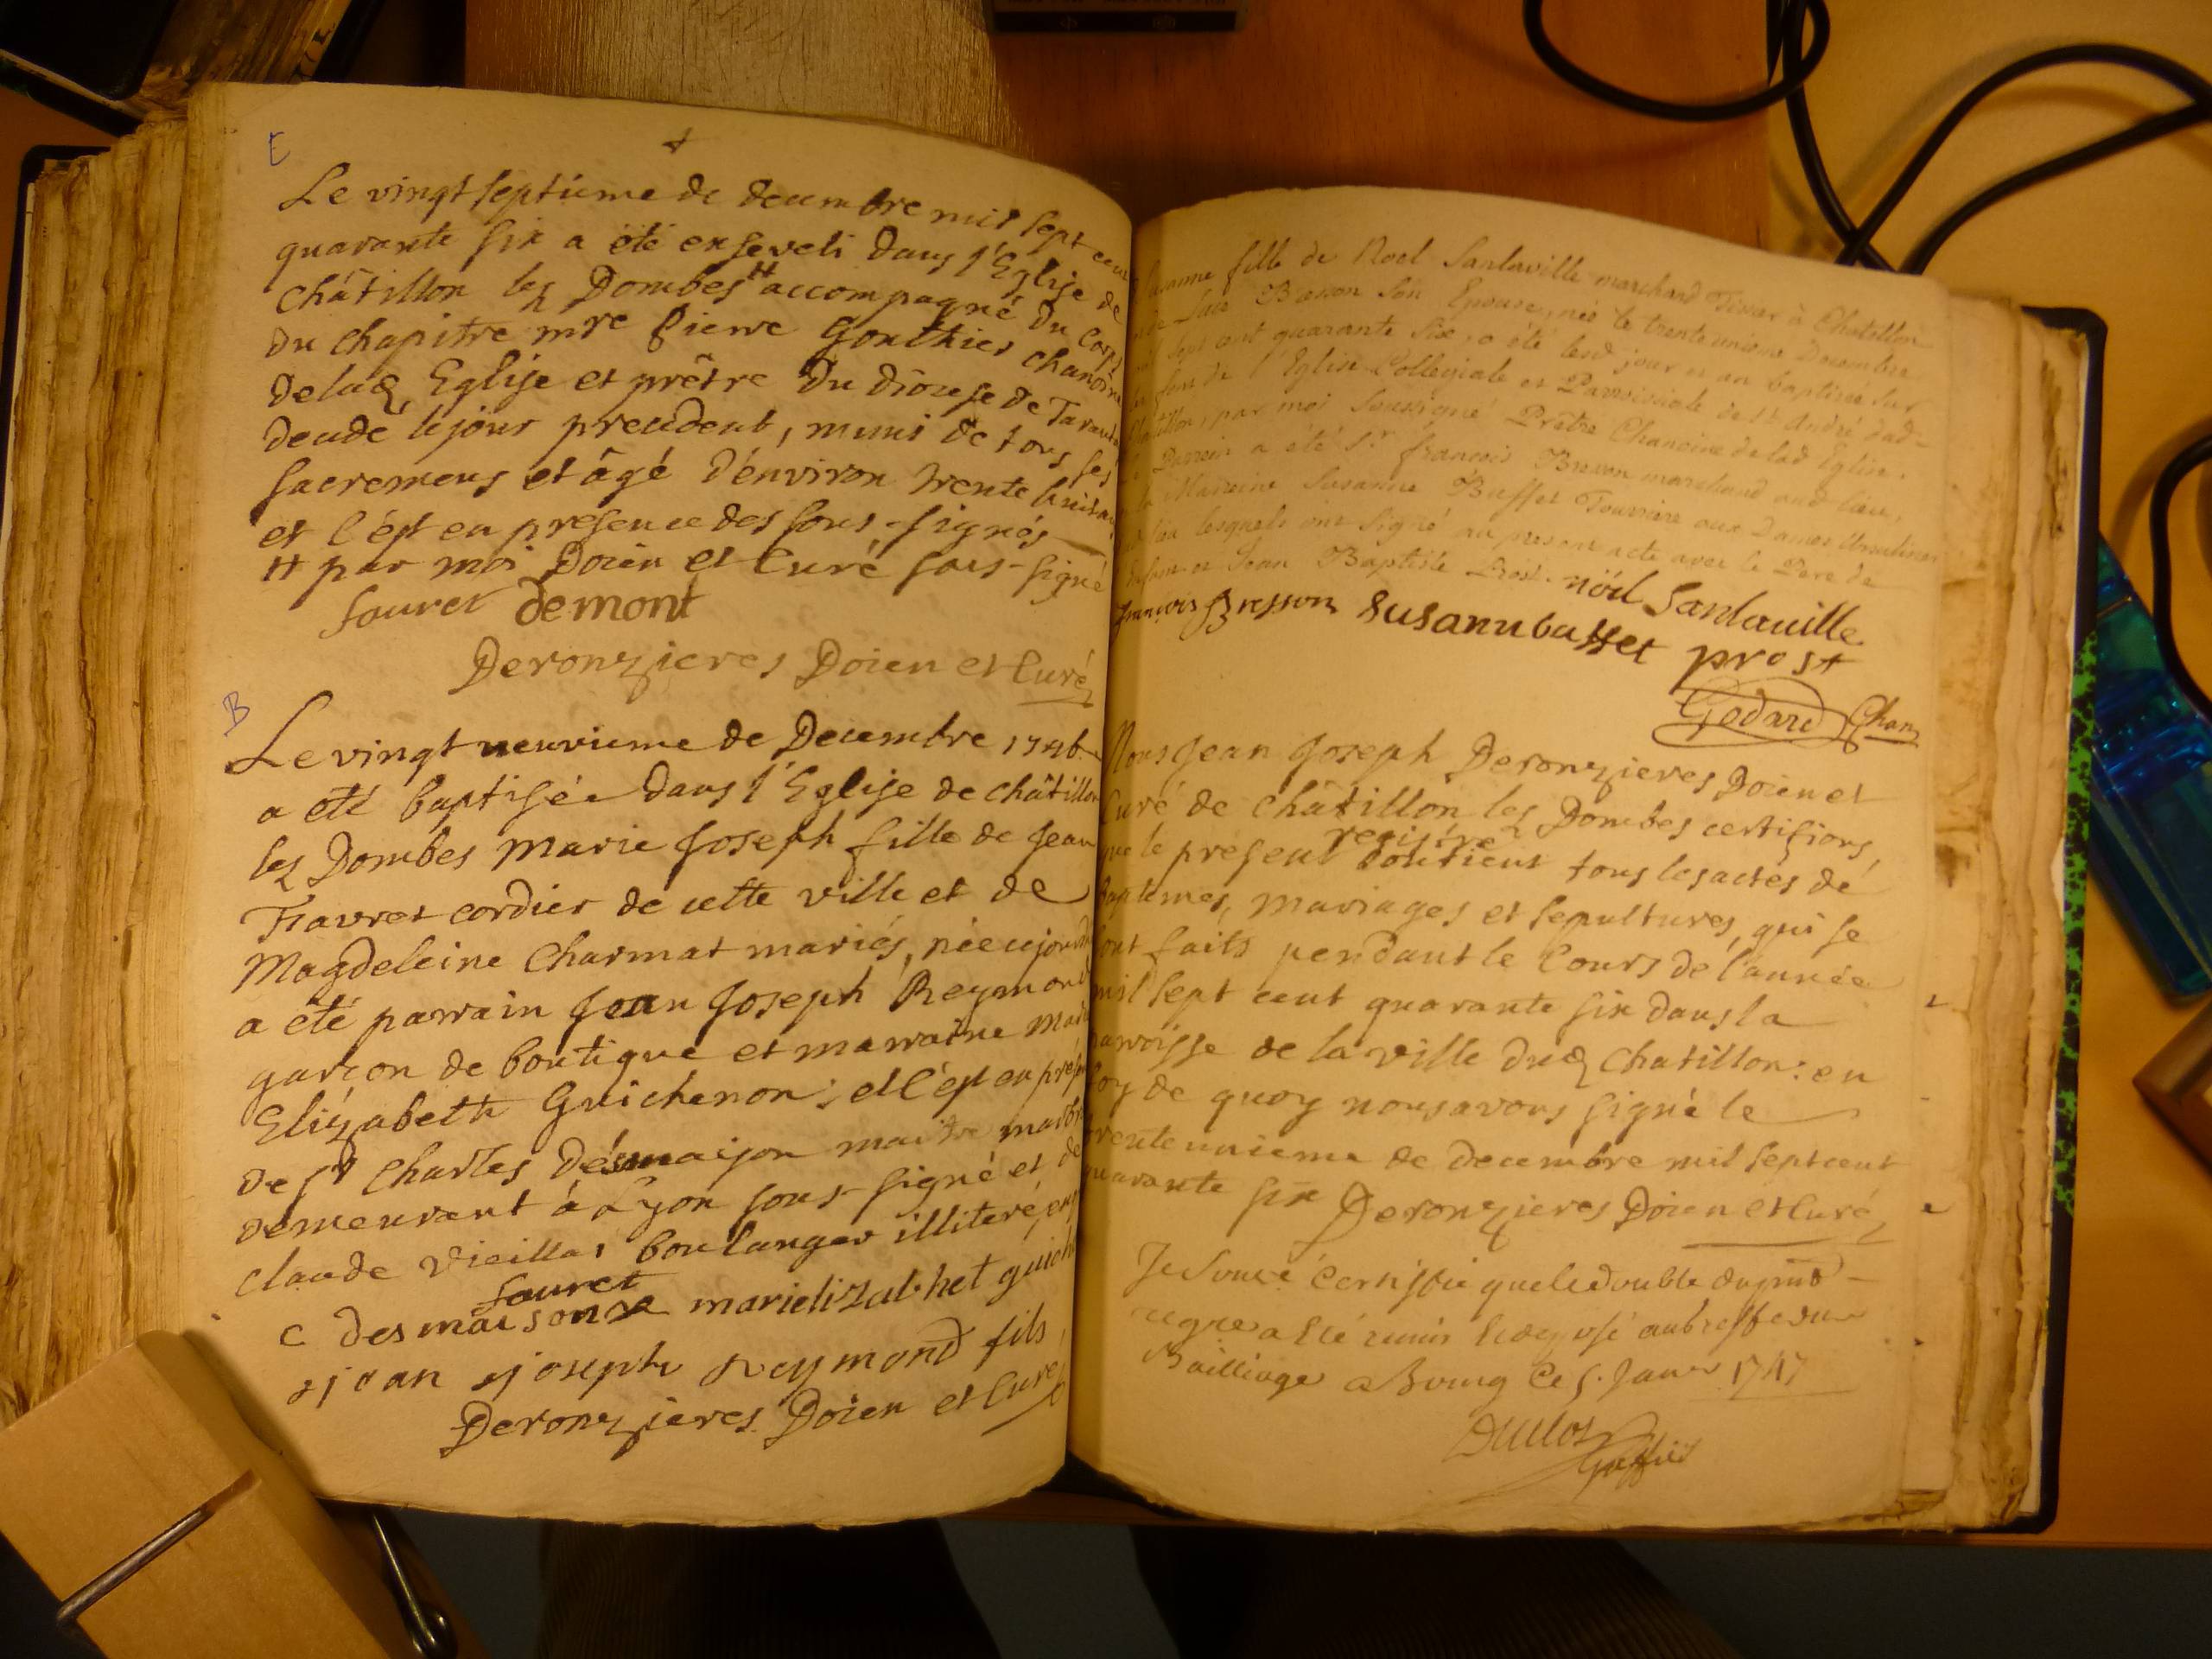 E
Le vingt septieme de decembre mil sept cent
quarante six a été enseveli dans l'Eglise de
châtillon les Dombes # accompagné du Corps
du chapitre mre pierre Gonthier chanoine
de lad. Eglise et prêtre du diocese de Tarantaise
decedé le jour precedent, muni de tous ses
sacremens et âgé d'environ trente huit ans
et c'est en presence des sous-signés
# par moi Doien et Curé sous-signé
fouret demont
Deronzieres Doien et Curé
B
Le vingt neuvieme de Decembre 1746
a été baptisée dans l'Eglise de châtillon
les Dombes marie Joseph fille de Jean
Favret cordier de cette ville et de
Magdeleine Charmat mariés, née
a été parrain Jean Joseph Reymond
garçon de boutique et marraine marie
Elizabeth Guichenon; et c'est en presence
de sr Charles Desmaison maitre
demeurant à Lyon sous-signé et de
claude vieillar boulanger illiteré
fouret
C desmaison marielizabhet guiche
jean joseph Reymond fils
Deronzieres Doien et Curé
Susanne fille de Noel Sanlaville marchand Tissier à Chatillon
Bresson son Epouse, née le trente unieme Decembre
mil sept cent quarante six, a été lesd jour et an baptisée sur
les fons de l'Eglise Collegiale et Paroissiale de St André dud
Chatillon, par moi soussigné Prêtre Chanoine de lad Eglise.
le Parrein a été Sr françois Bresson marchand aud lieu,
et la Marreine Susanne Buffet Tourriere aux Dames Ursulines
dud lieu lesquels ont signé au present acte avec le Pere de
l'enfant et Jean Baptiste Prost. nöel Sanlauille
françois Bresson Susanne buffet prost
Godard Chan
Nous Jean Joseph Deronzieres Doien et
Curé de châtillon les Dombes certifions,
que le present registre contient tous les actes de
baptêmes, mariages et sepultures, qui se
sont faits pendant le Cours de l'année
mil sept cent quarante six dans la
parroisse de la ville dud. Chatillon: en
foy de quoy nous avons signé le
trente unieme de decembre mil sept cent
quarante six Deronzieres Doien et Curé
Je certiffie que le double du pnt
regre a été remis au greffe du
Bailliage a Bourg Ce 5. Janer 1747
Duclos
Greffier